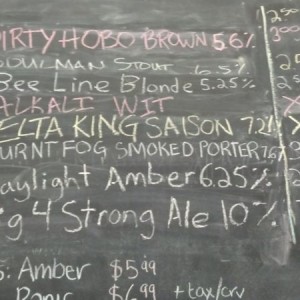 DIRTY HOBO BROWN 5.6%
STOUT 6.5%
Bee Line Blonde 5.25%
ALKALI WIT
DELTA KING SAISON 7.2%
BURNT FOG SMOKED PORTER 7.6%
Daylight Amber 6.25%
g 4 Strong Ale 10%
Amber $5.99
$6.99 + tax/crv
2.50